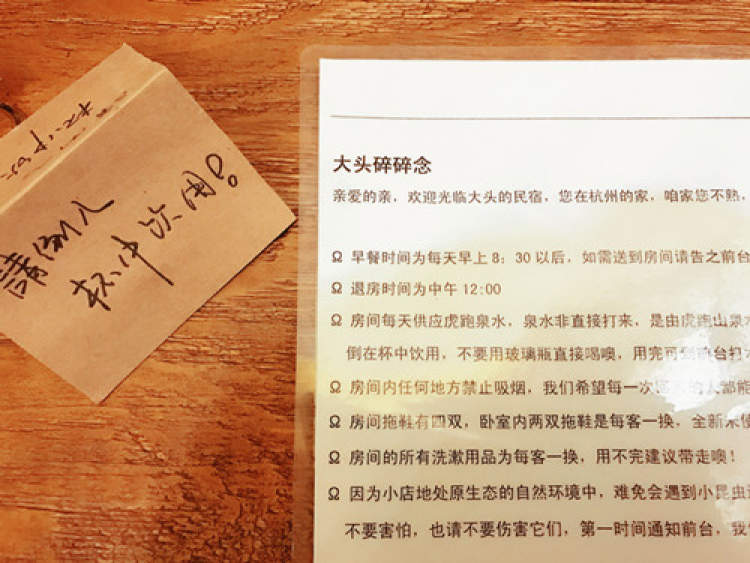 請倒入
杯中饮用！
大头碎碎念
亲爱的亲，欢迎光临大头的民宿，您在杭州的家，咱家您不熟，
Ω 早餐时间为每天早上 8：30 以后，如需送到房间请告之前台
Ω 退房时间为中午 12:00
Ω 房间每天供应虎跑泉水，泉水非直接打来，是由虎跑山泉水
倒在杯中饮用，不要用玻璃瓶直接喝噢，用完可到前台打
Ω 房间内任何地方禁止吸烟，我们希望每一次 人都能
Ω 房间拖鞋有四双，卧室内两双拖鞋是每客一换，全新未使
Ω 房间的所有洗漱用品为每客一换，用不完建议带走噢！
Ω 因为小店地处原生态的自然环境中，难免会遇到小昆虫
不要害怕，也请不要伤害它们，第一时间通知前台，我